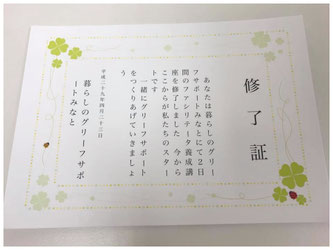 修了証
あなたは暮らしのグリー
フサポートみなとにて2日
間のファシリテータ養成講
座を修了しました 今から
ここからが私たちのスター
トです
一緒にグリーフサポート
をつくりあげていきましょ
う
平成二十九年四月二十三日
暮らしのグリーフサポ
ートみなと